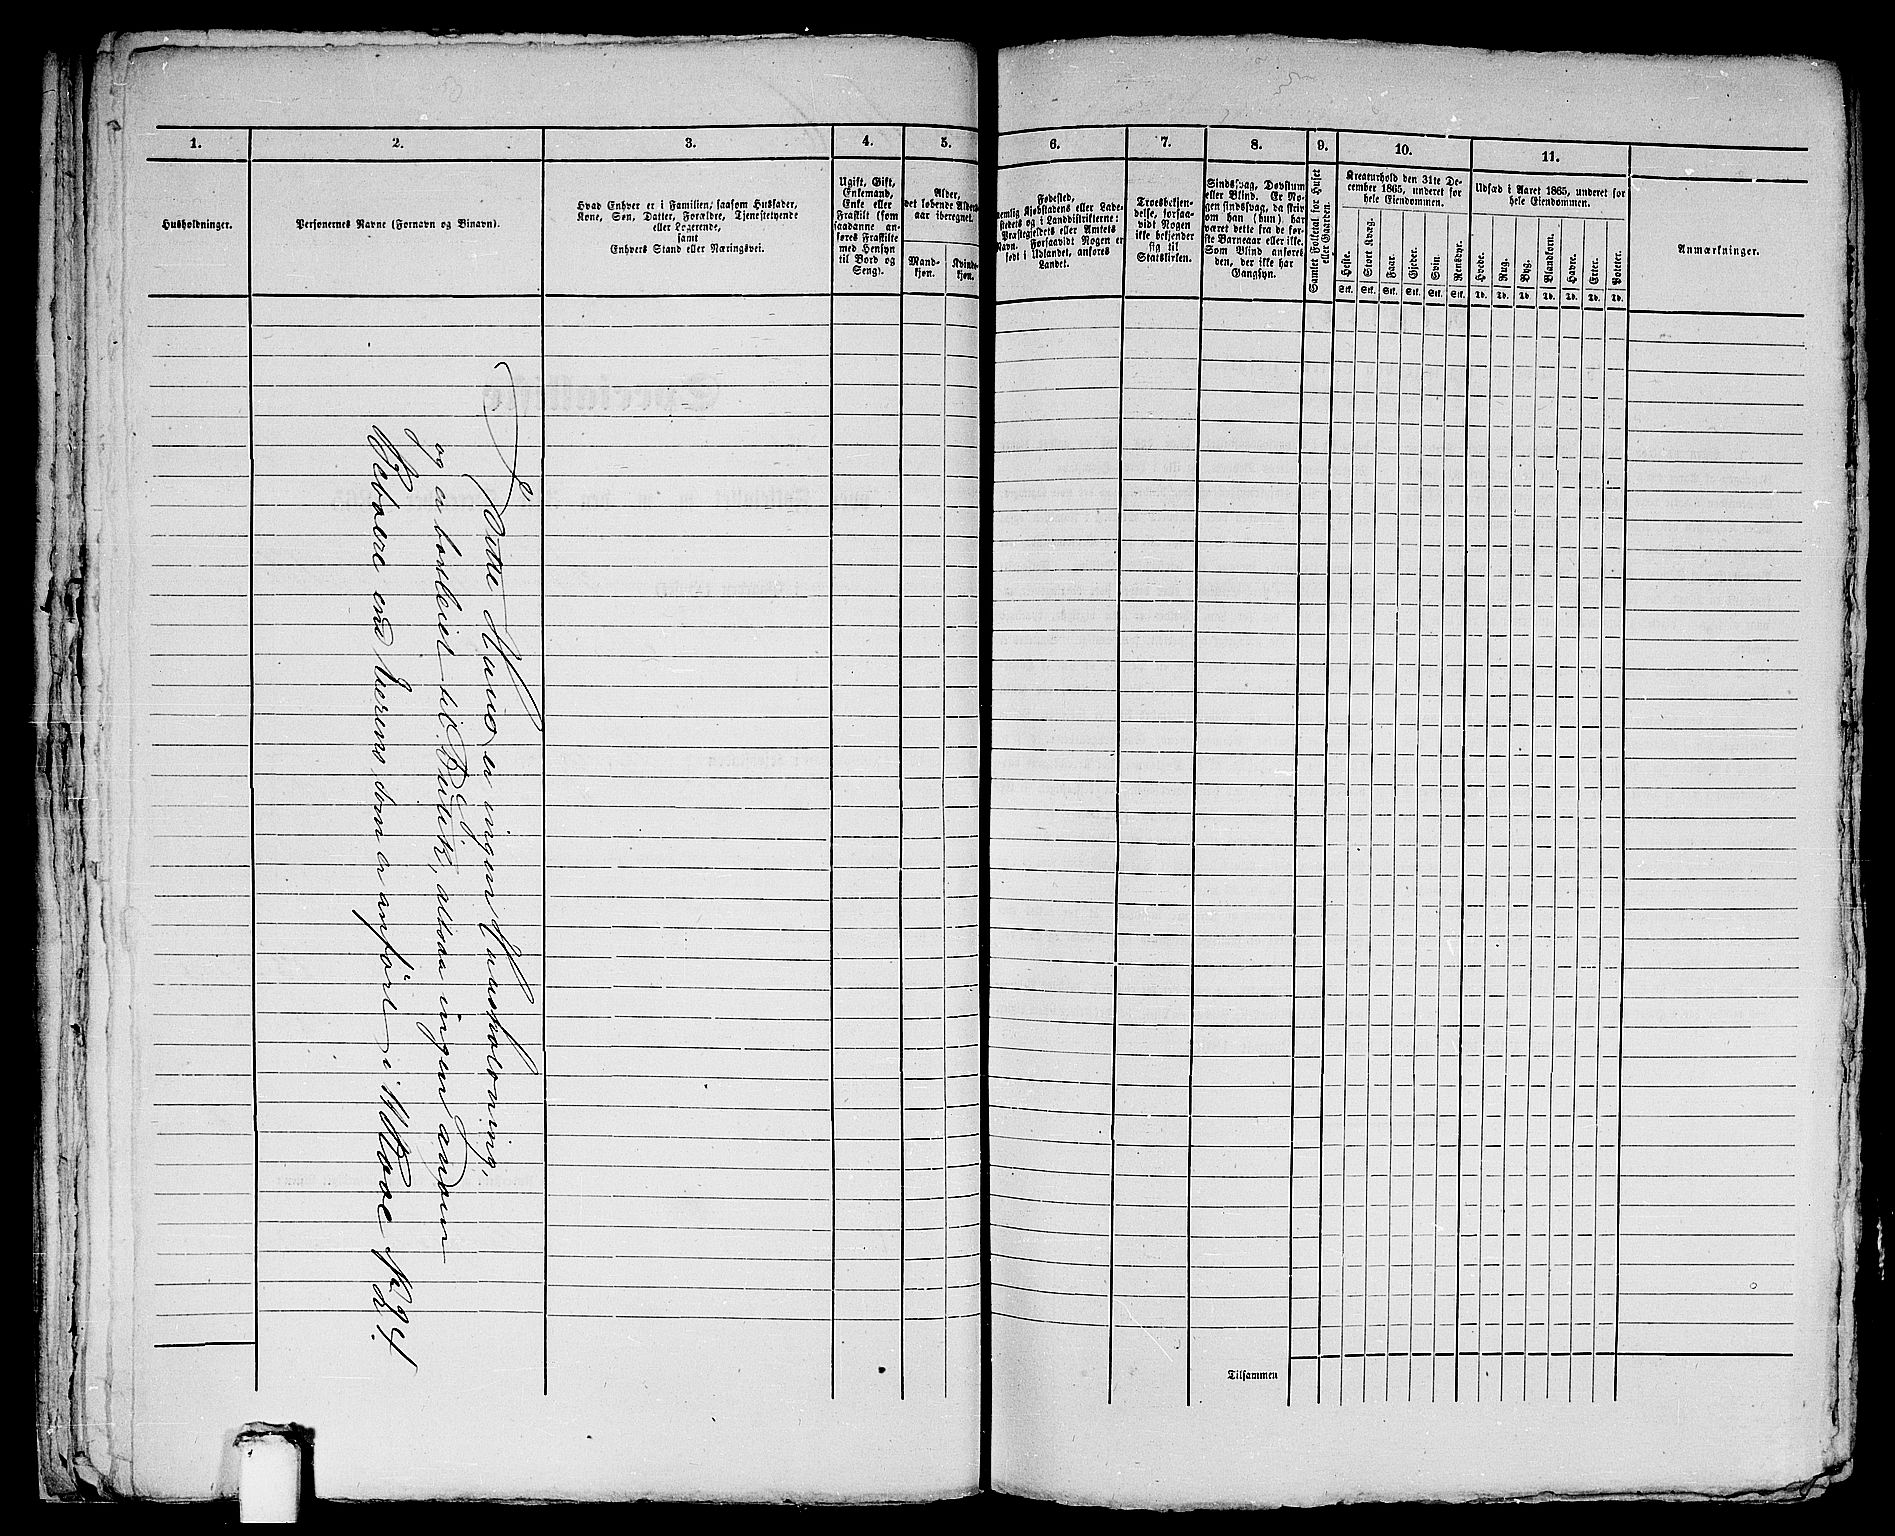 1.
2.
3.
4.
5.
6.
7.
8.
9.
10.
11.
Husholdninger.
Personernes Navne (Fornavn og Binavn).
Hvad Enhver er i Familien, saasom Husfader,
Kone, Søn, Datter, Forældre, Tjenestetyende
eller Logerende,
samt
Enhvers Stand eller Næringsvei.
Ugift, Gift,
Enkemand,
Enke eller
Fraskilt (som
saadanne an-
føres Fraskilte
med Hensyn
til Bord og
Seng).
Alder,
det løbende Alders-
aar iberegnet.
Mand-
kjøn.
Kvinde-
kjøn.
Fødested,
nemlig Kjøbstadens eller Lade-
stedets og i Landdistrikterne:
Præstegjeldets eller Amtets
Navn. Forsaavidt Nogen er
født i Udlandet, anføres
Landet.
Troesbekjen-
delse, forsaa-
vidt Nogen
ikke bekjender
sig til
Statskirken.
Sindssvag, Døvstum
eller Blind. Er No-
gen sindssvag, da skriv
om han (hun) har
været dette fra de før-
ste Barneaar eller ikke.
Som Blind anføres
den, der ikke har
Gangsyn.
Samlet Folketal for Huset
eller Gaarden.
Kreaturhold den 31te De-
cember 1865, underet for
hele Eiendommen.
Heste.
Stort Kvæg.
Faar.
Gjeder.
Svin.
Rensdyr.
Stk. Stk. Stk. Stk. Stk. Stk.
Udsæd i Aaret 1865, underet for
hele Eiendommen.
Hvede.
Rug.
Byg.
Blandkorn.
Havre.
Erter.
Poteter.
Td. Td. Td. Td. Td. Td. Td.
Anmærkninger.
I dette Huus er ingen Huusholdning,
og er bortleiet til Butik, altsaa ingen anden
Beboere end Verens som er anført i
Tilsammen